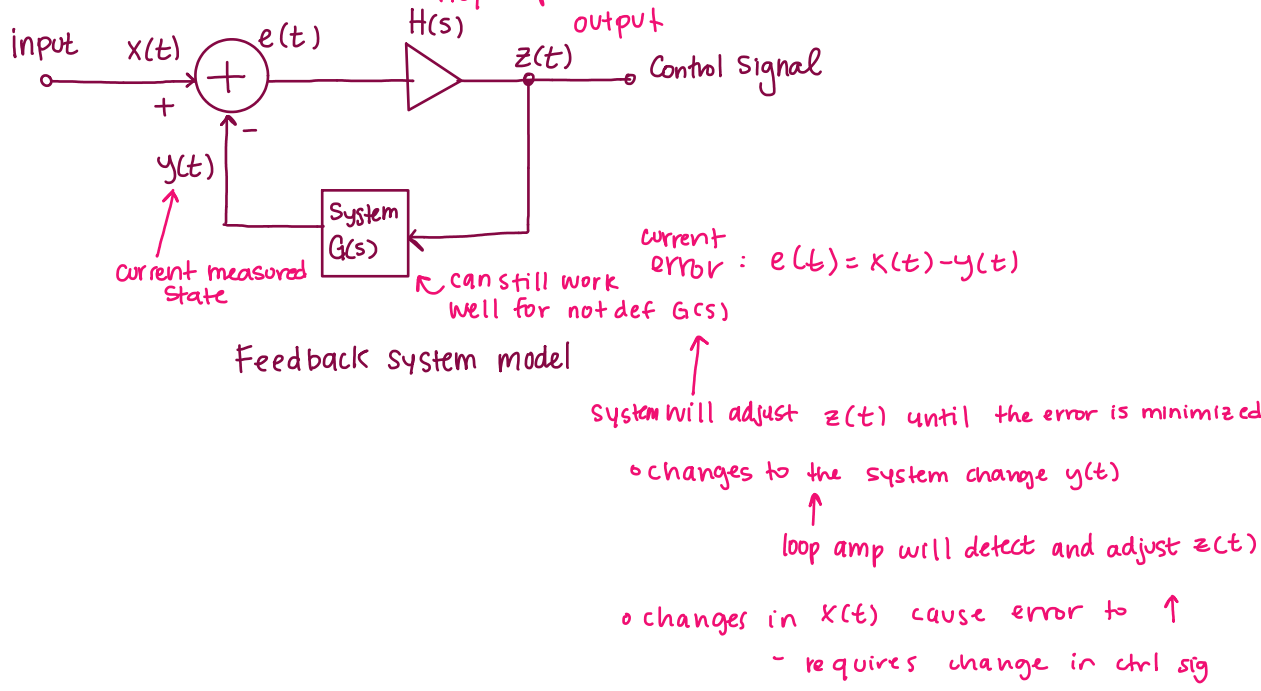 H(s)
output
input
x(t)
e(t)
z(t)
Control Signal
+
+
-
y(t)
System
G(s)
current measured
state
can still work
well for not def G(s)
current
error : e(t) = x(t) - y(t)
Feedback system model
system will adjust z(t) until the error is minimized
• changes to the system change y(t)
loop amp will detect and adjust z(t)
• changes in x(t) cause error to ↑
- requires change in ctrl sig